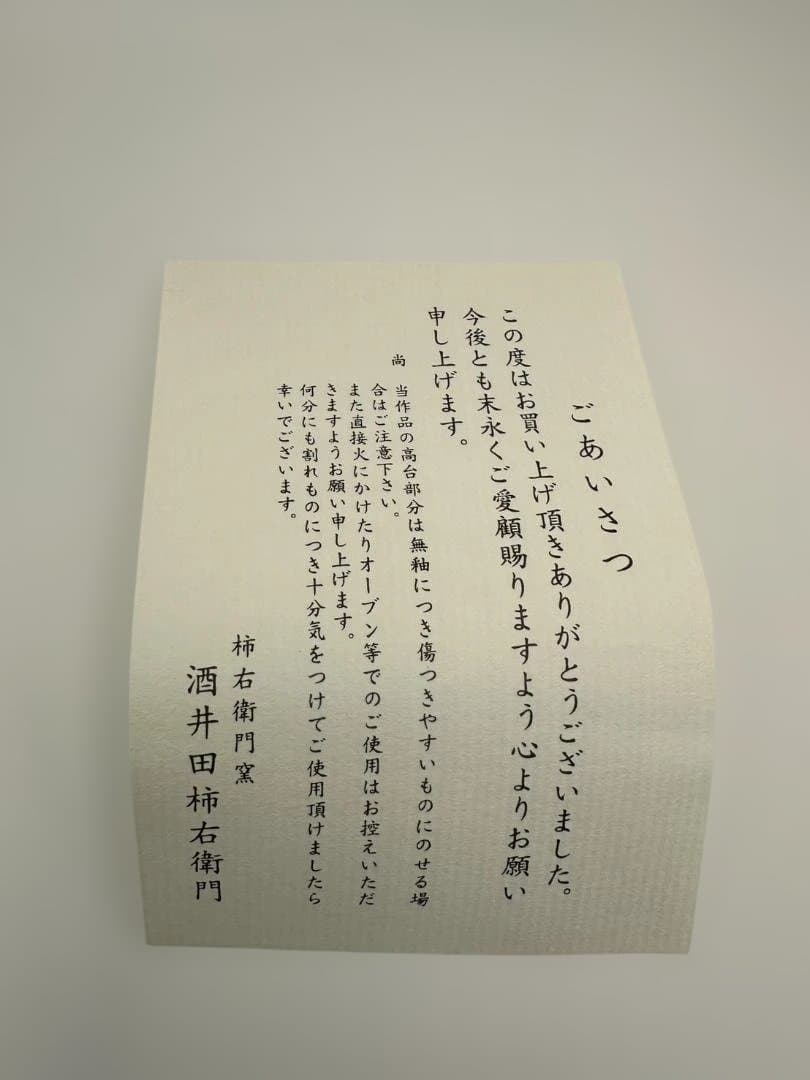 ごあいさつ
この度はお買い上げ頂きありがとうございました。
今後とも末永くご愛顧賜りますよう心よりお願い
申し上げます。
尚 当作品の高台部分は無釉につき傷つきやすいものにのせる場
合はご注意下さい。
また直接火にかけたりオーブン等でのご使用はお控えいただ
きますようお願い申し上げます。
何分にも割れものにつき十分気をつけてご使用頂けましたら
幸いでございます。
柿右衛門窯
酒井田柿右衛門